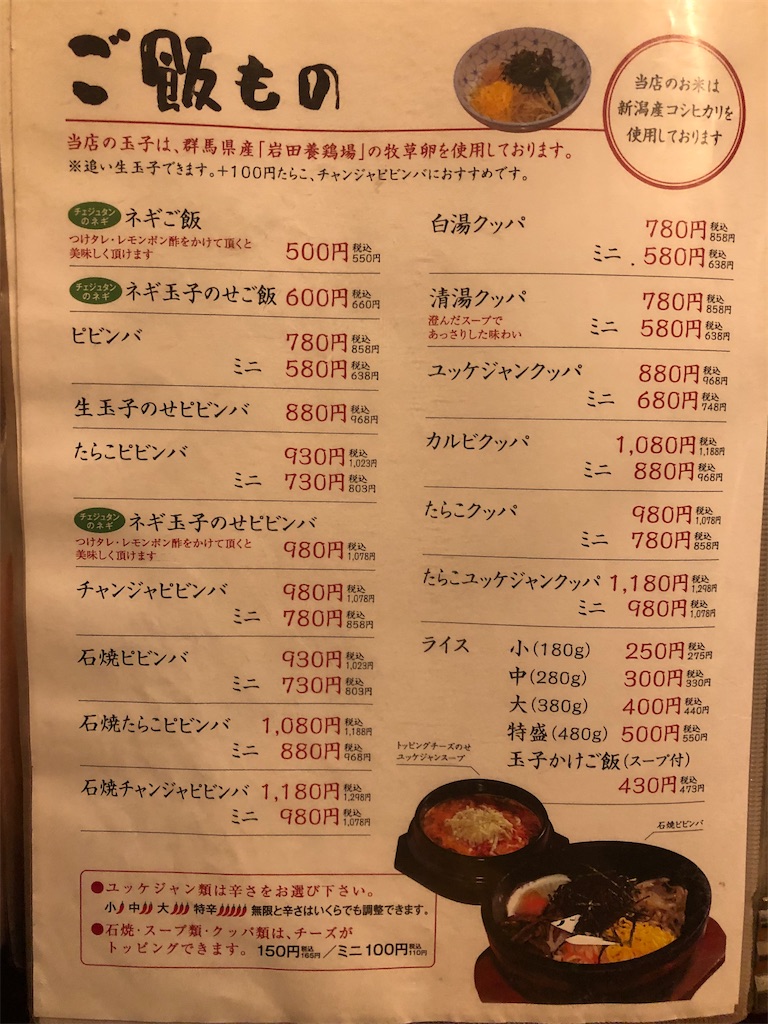 ご飯もの
当店のお米は
新潟産コシヒカリを
使用しております
当店の玉子は、群馬県産「岩田養鶏場」の牧草卵を使用しております。
※追い生玉子できます。+100円たらこ、チャンジャピビンバにおすすめです。
チェジュタンのネギ ネギご飯
つけタレ・レモンポン酢をかけて頂くと
美味しく頂けます 500円 税込550円
チェジュタンのネギ ネギ玉子のせご飯 600円 税込660円
ピビンバ 780円 税込858円
ミニ 580円 税込638円
生玉子のせピビンバ 880円 税込968円
たらこピビンバ 930円 税込1,023円
ミニ 730円 税込803円
チェジュタンのネギ ネギ玉子のせピビンバ
つけタレ・レモンポン酢をかけて頂くと
美味しく頂けます 980円 税込1,078円
チャンジャピビンバ 980円 税込1,078円
ミニ 780円 税込858円
石焼ピビンバ 930円 税込1,023円
ミニ 730円 税込803円
石焼たらこピビンバ 1,080円 税込1,188円
ミニ 880円 税込968円
石焼チャンジャピビンバ 1,180円 税込1,298円
ミニ 980円 税込1,078円
白湯クッパ 780円 税込858円
ミニ 580円 税込638円
清湯クッパ 780円 税込858円
澄んだスープで
あっさりした味わい ミニ 580円 税込638円
ユッケジャンクッパ 880円 税込968円
ミニ 680円 税込748円
カルビクッパ 1,080円 税込1,188円
ミニ 880円 税込968円
たらこクッパ 980円 税込1,078円
ミニ 780円 税込858円
たらこユッケジャンクッパ 1,180円 税込1,298円
ミニ 980円 税込1,078円
ライス 小(180g) 250円 税込275円
中(280g) 300円 税込330円
大(380g) 400円 税込440円
特盛(480g) 500円 税込550円
玉子かけご飯(スープ付)
430円 税込473円
トッピングチーズのせ
ユッケジャンスープ
石焼ピビンバ
●ユッケジャン類は辛さをお選び下さい。
小 中 大 特辛 無限と辛さはいくらでも調整できます。
●石焼・スープ類・クッパ類は、チーズが
トッピングできます。 150円 税込165円/ミニ100円 税込110円